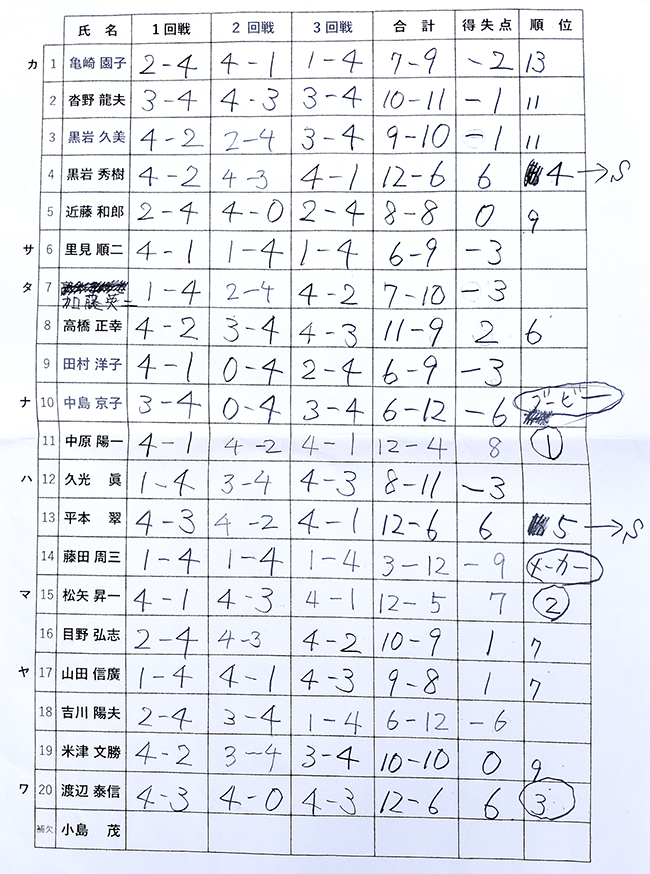 氏 名 1回戦 2 回戦 3回戦 合 計 得失点 順 位
カ 1 亀崎 園子 2-4 4-1 1-4 7-9 -2 13
2 沓野 龍夫 3-4 4-3 3-4 10-11 -1 11
3 黒岩 久美 4-2 2-4 3-4 9-10 -1 11
4 黒岩 秀樹 4-2 4-3 4-1 12-6 6 4→S
5 近藤 和郎 2-4 4-0 2-4 8-8 0 9
サ 6 里見 順二 4-1 1-4 1-4 6-9 -3
タ 7 加藤英二 1-4 2-4 4-2 7-10 -3
8 高橋 正幸 4-2 3-4 4-3 11-9 2 6
9 田村 洋子 4-1 0-4 2-4 6-9 -3
ナ 10 中島 京子 3-4 0-4 3-4 6-12 -6 ブービー
11 中原 陽一 4-1 4-2 4-1 12-4 8 ①
ハ 12 久光 眞 1-4 3-4 4-3 8-11 -3
13 平本 翠 4-3 4-2 4-1 12-6 6 5→S
14 藤田 周三 1-4 1-4 1-4 3-12 -9 メーカー
マ 15 松矢 昇一 4-1 4-3 4-1 12-5 7 ②
16 目野 弘志 2-4 4-3 4-2 10-9 1 7
ヤ 17 山田 信廣 1-4 4-1 4-3 9-8 1 7
18 吉川 陽夫 2-4 3-4 1-4 6-12 -6
19 米津 文勝 4-2 3-4 3-4 10-10 0 9
ワ 20 渡辺 泰信 4-3 4-0 4-3 12-6 6 ③
補欠 小島 茂